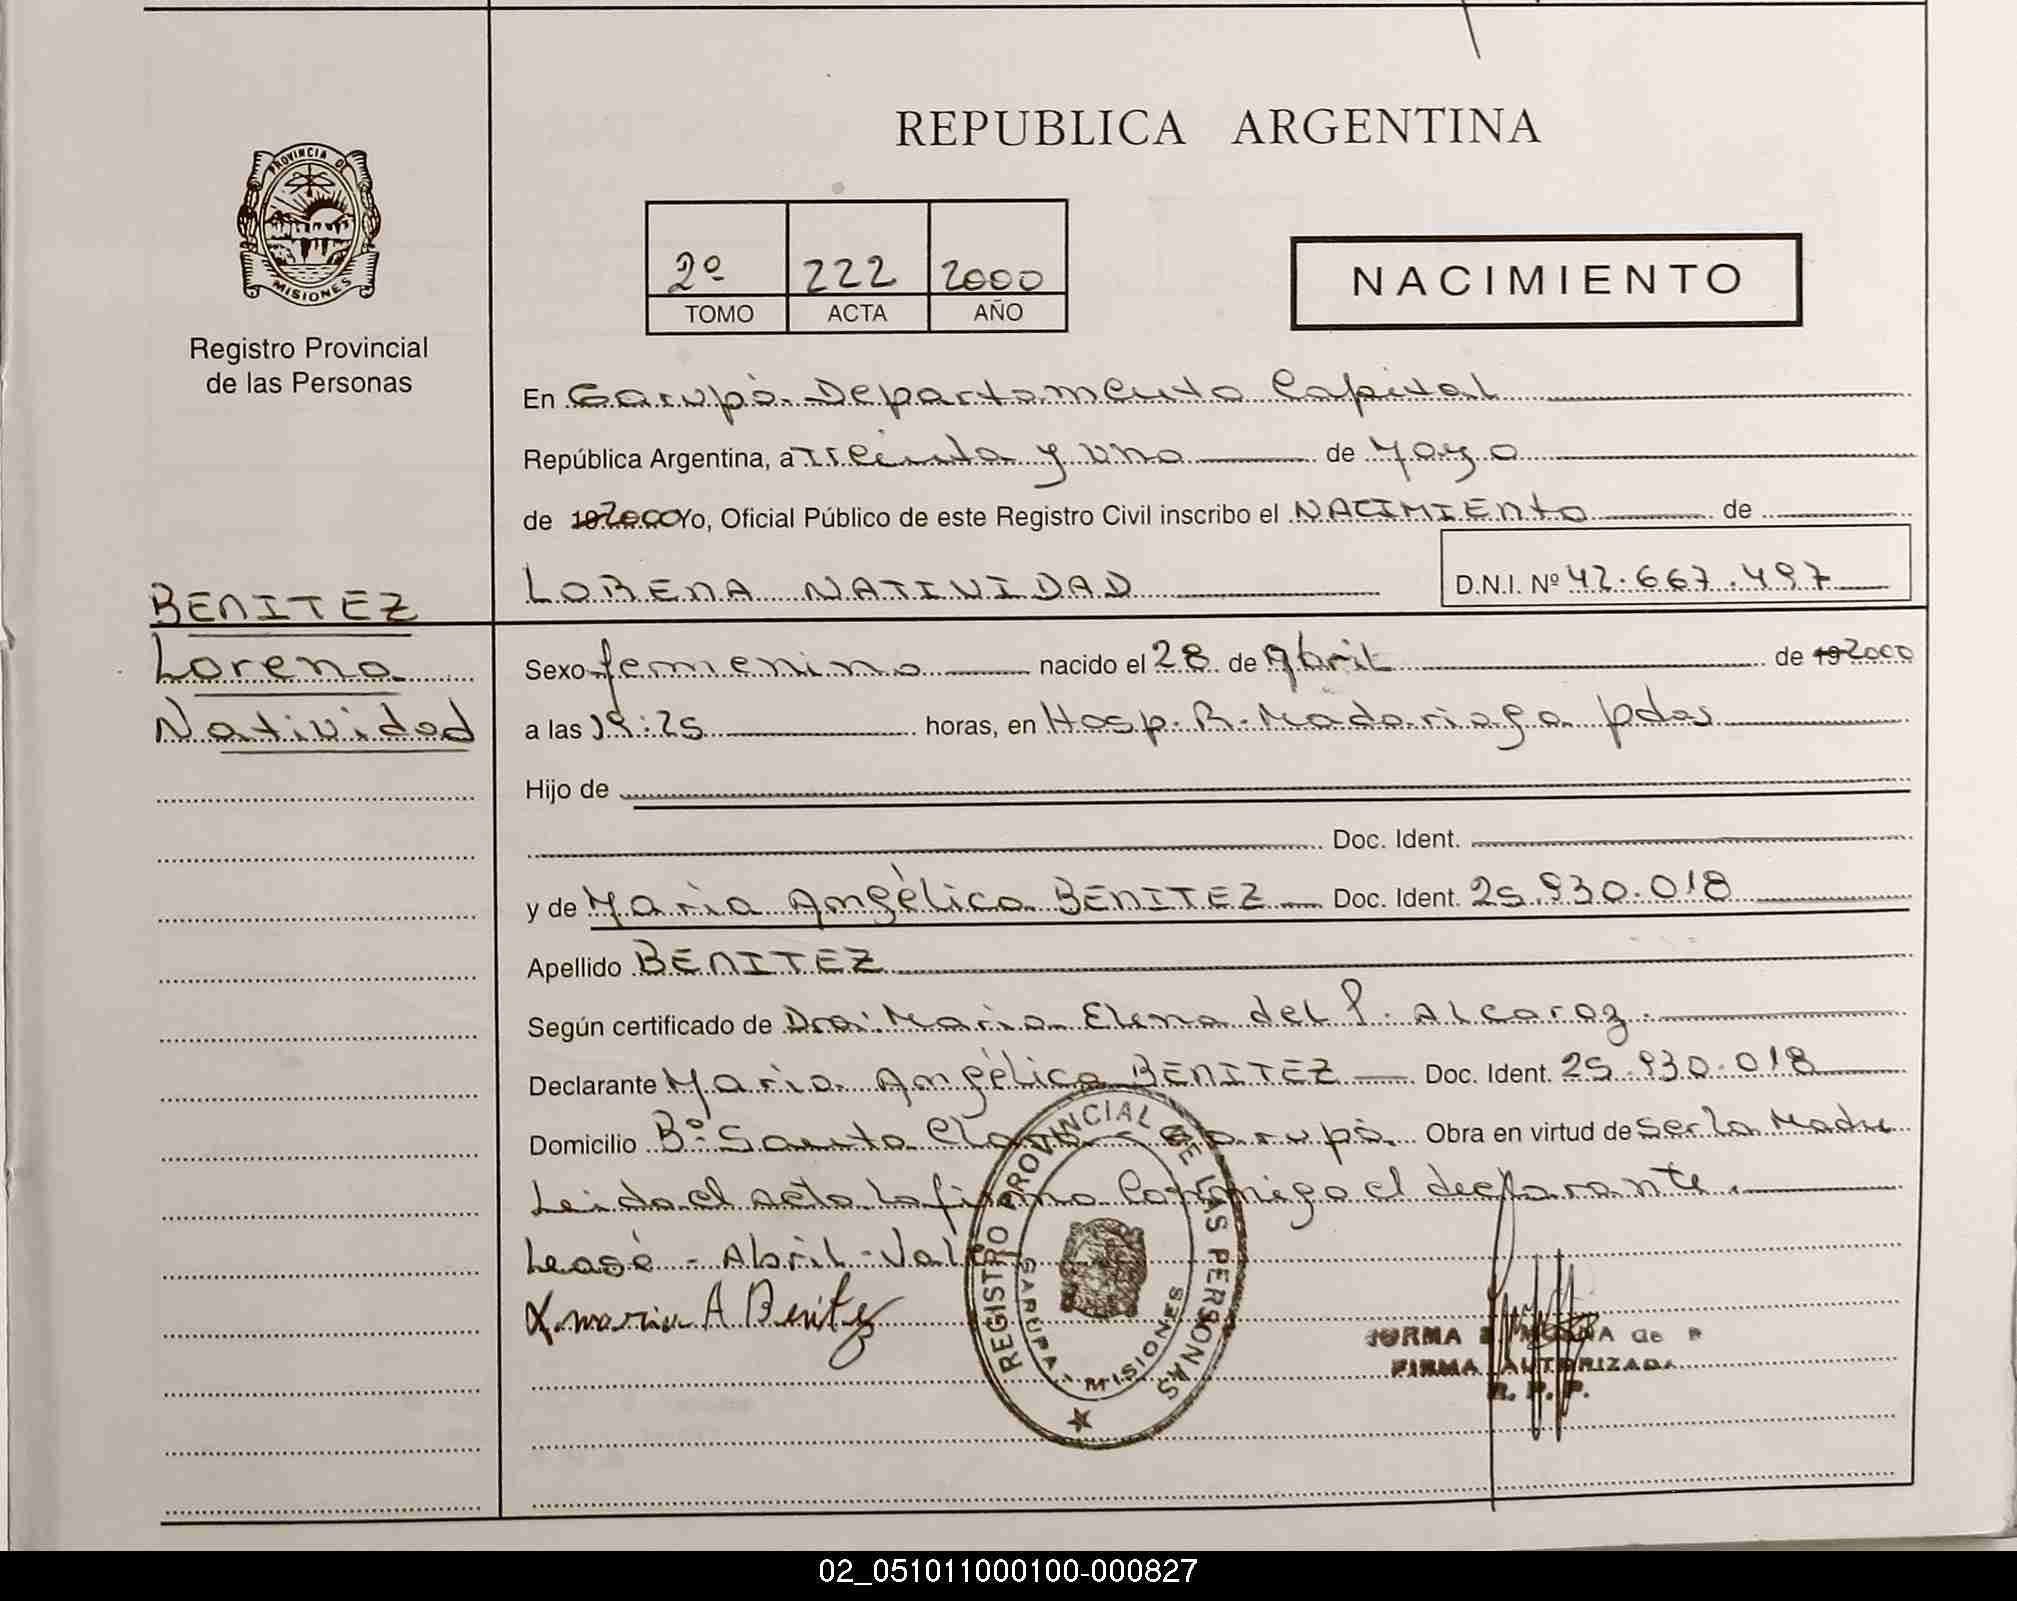 REPUBLICA ARGENTINA
PROVINCIA DE
MISIONES
Registro Provincial
de las Personas
2º 222 2000
TOMO ACTA AÑO
NACIMIENTO
En Garupà - Departamento Capital
República Argentina, a Treinta y uno de Mayo
de 19 2000 Yo, Oficial Público de este Registro Civil inscribo el NACIMIENTO de
LORENA NATIVIDAD D.N.I. Nº 42.667.497
BENITEZ
Lorena
Natividad
Sexo femenino nacido el 28 de Abril de 19 2000
a las 19:25 horas, en Hosp. R. Madariaga pdas
Hijo de
Doc. Ident.
y de Maria Angèlica BENITEZ Doc. Ident. 25.930.018
Apellido BENITEZ
Según certificado de Dra: Maria Elena del P. ALcaraz.
Declarante Maria Angèlica BENITEZ Doc. Ident. 25.930.018
Domicilio Bº Santa Clara - Garupà. Obra en virtud de Ser la Madre
Leida el Acta La firma Conmigo el declarante.
Leasè - Abril - Vale
X maria A Benitez
REGISTRO PROVINCIAL DE LAS PERSONAS
GARUPA - MISIONES
NORMA de
FIRMA AUTORIZADA
R. P. P.
02_051011000100-000827